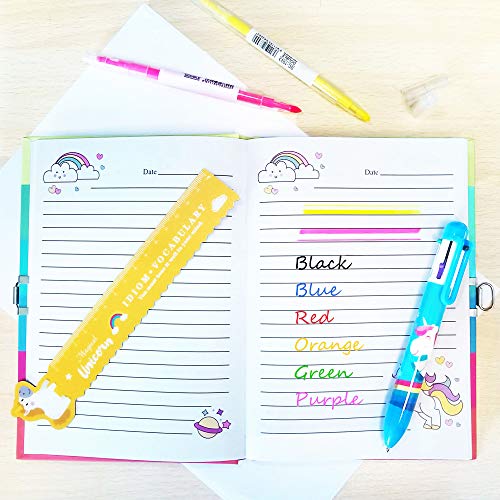 Date
Date
IDIOM • VOCABULARY
Magical
Unicorn
Black
Blue
Red
Orange
Green
Purple